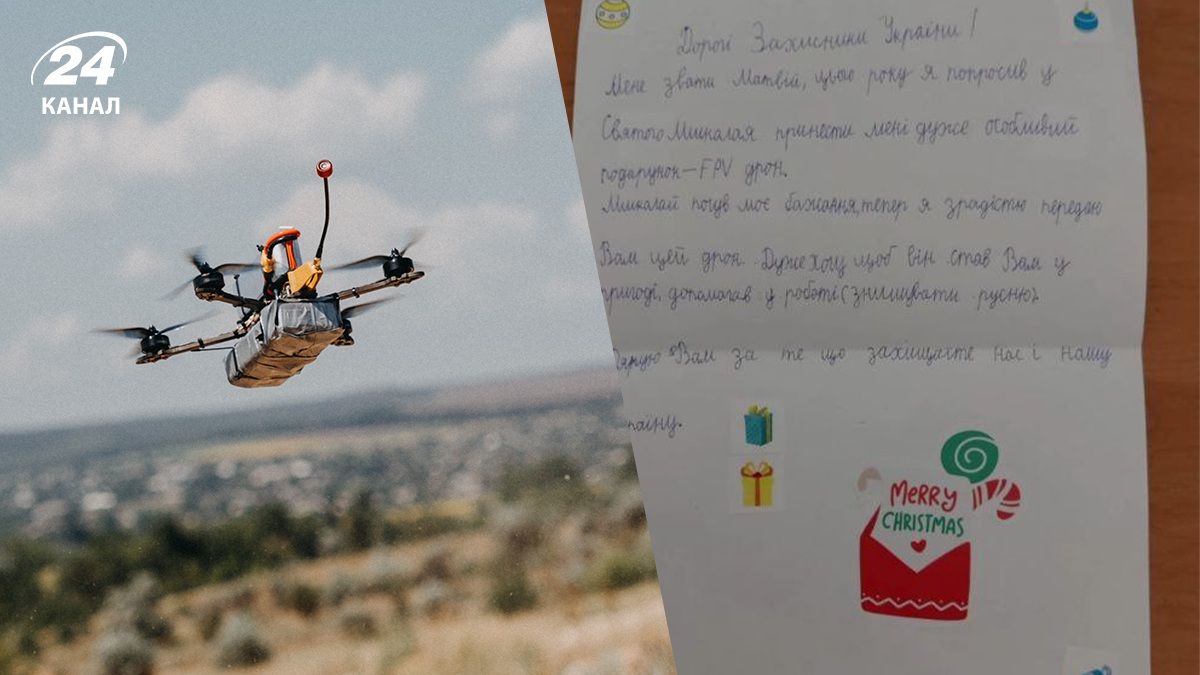 24
КАНАЛ
Дорогі Захисники України!
Мене звати Матвій, цього року я попросив у
Святого Миколая принести мені дуже особливий
подарунок – FPV дрон.
Миколай почув моє бажання, тепер я з радістю передаю
Вам цей дрон. Дуже хочу щоб він став Вам у
пригоді, допомагав у роботі (знищувати русню).
Дякую Вам за те що захищаєте нас і нашу
раїну.
MERRY
CHRISTMAS